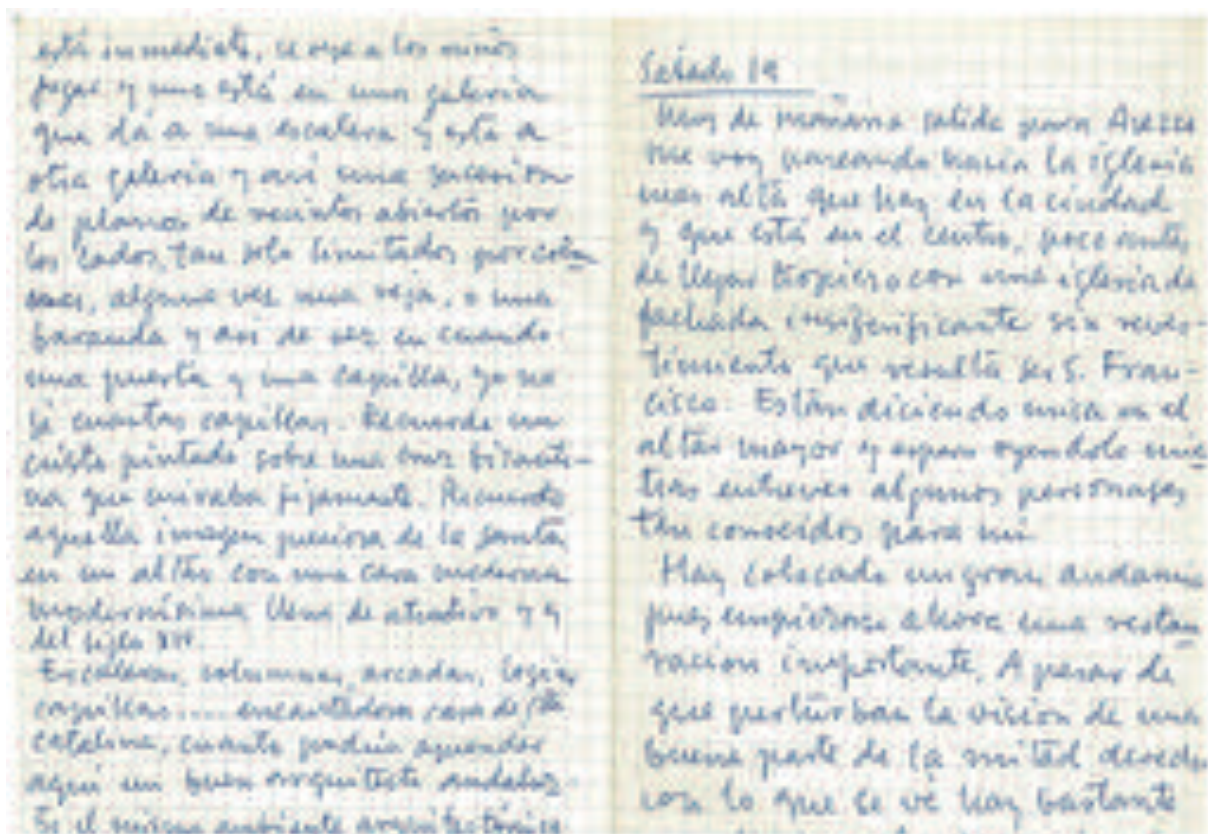 está inmediata, se oye a los niños
jugar y uno está en una galeria
que da a una escalera y esta a
otra galeria y asi una sucesion
de planos de recintos abiertos por
los lados, tan solo limitados por colum
nas, alguna vez una reja, o una
baranda y asi de vez en cuando
una puerta y una capilla, yo no
sé cuantas capillas. Recuerdo un
cristo pintado sobre una cruz bizanti-
na que miraba fijamente. Recuerdo
aquella imagen preciosa de la santa
en un altar con una cara moderna
modernisima llena de atractivo y
del siglo XIV.
Escaleras, columnas, arcadas, logias
capillas.... encantadora casa de Sta
Catalina, cuanto podria aprender
aqui un buen arquitecto andaluz.
Es el mismo ambiente arquitectónico
Sábado 19
de mañana salida para Arezzo
me voy paseando hacia la iglesia
mas alta que hay en la ciudad
y que está en el centro, poco antes
de llegar tropiezo con una iglesia de
fachada insignificante sin reves-
timiento que resulta ser S. Fran-
cisco. Están diciendo misa en el
altar mayor y espero oyendola mien
tras entreveo algunos personajes
tan conocidos para mi.
Hay colocado un gran andamio
pues empiezan ahora una restau
racion importante. A pesar de
que perturban la vision de una
buena parte de la mitad derecha
con lo que se vé hay bastante